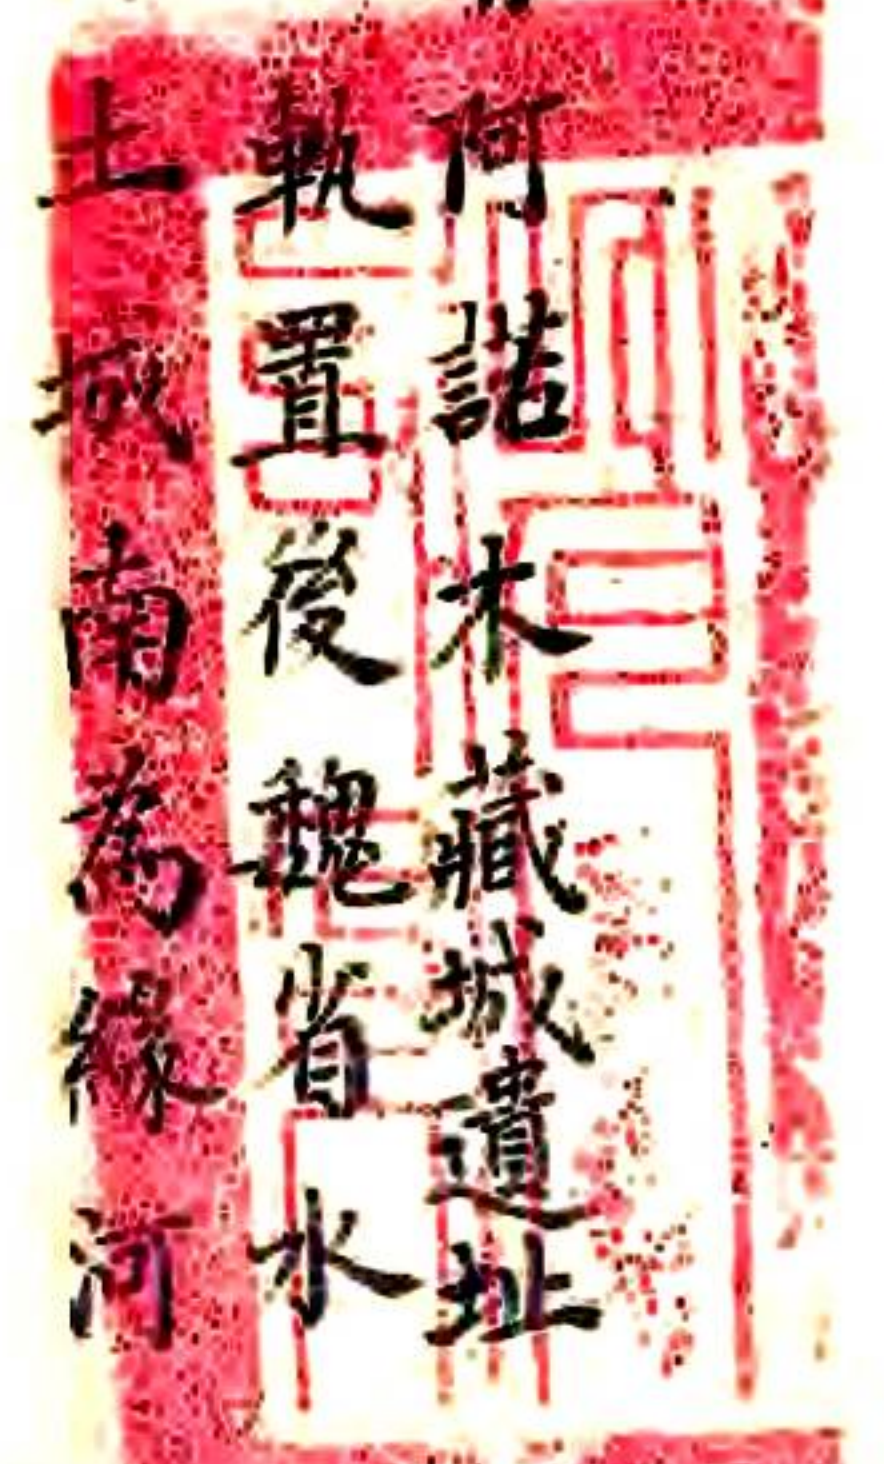 阿諾木藏城遺址
執置後魏省水
土城南為緣河